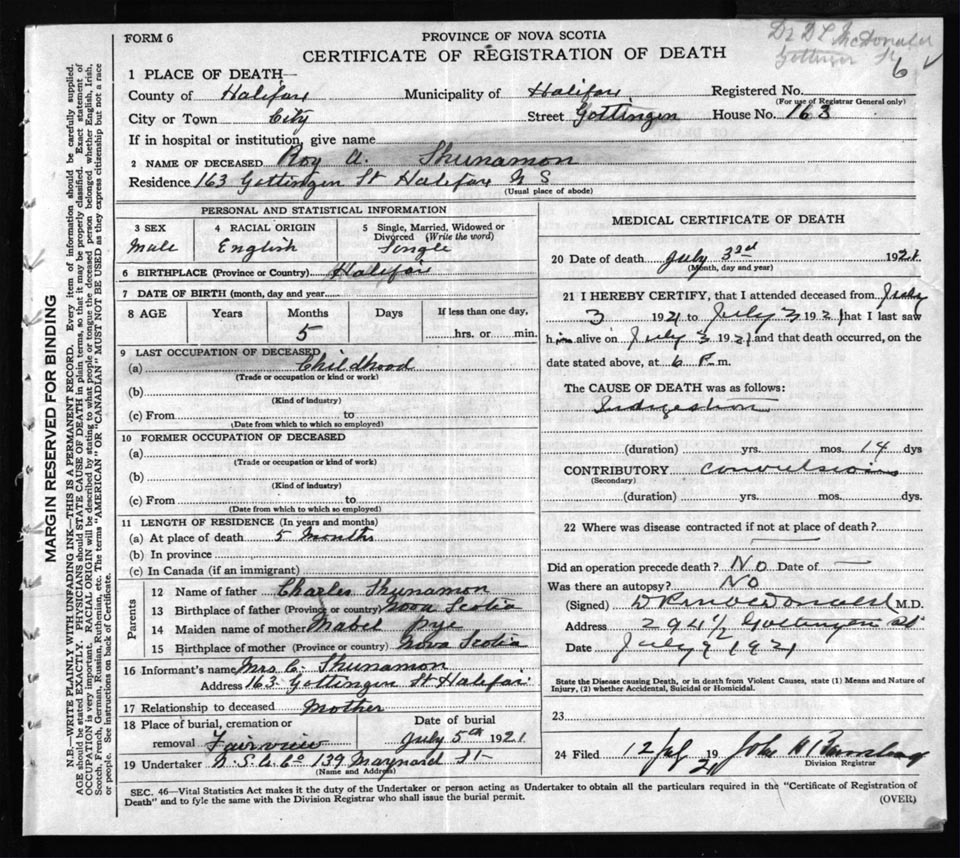 FORM 6
PROVINCE OF NOVA SCOTIA
CERTIFICATE OF REGISTRATION OF DEATH
Dr D L McDonald
Gottingen St
6
MARGIN RESERVED FOR BINDING
N.B.—WRITE PLAINLY WITH UNFADING INK—THIS IS A PERMANENT RECORD. Every item of information should be carefully supplied.
AGE should be stated EXACTLY. PHYSICIANS should STATE CAUSE OF DEATH in plain terms, so that it may be properly classified. Exact statement of
OCCUPATION is very important. RACIAL ORIGIN will be described by stating to what people or tongue the deceased person belonged whether English, Irish,
Scotch, French, German, Russian, Ruthenian, etc. The terms "AMERICAN" OR "CANADIAN" MUST NOT BE USED as they express citizenship but not a race
or people. See instructions on back of Certificate.
1 PLACE OF DEATH—
County of Halifax Municipality of Halifax Registered No.
(For use of Registrar General only)
City or Town City Street Gottingen House No. 163
If in hospital or institution, give name
2 NAME OF DECEASED Roy A. Shunamon
Residence 163 Gottingen St Halifax N S
(Usual place of abode)
PERSONAL AND STATISTICAL INFORMATION
3 SEX 4 RACIAL ORIGIN 5 Single, Married, Widowed or
Divorced (Write the word)
Male English Single
6 BIRTHPLACE (Province or Country) Halifax
7 DATE OF BIRTH (month, day and year
8 AGE Years Months Days If less than one day,
5 hrs. or min.
9 LAST OCCUPATION OF DECEASED
(a) Childhood
(Trade or occupation or kind or work)
(b)
(Kind of industry)
(c) From to
(Date from which to which so employed)
10 FORMER OCCUPATION OF DECEASED
(a)
(Trade or occupation or kind of work)
(b)
(Kind of industry)
(c) From to
(Date from which to which so employed)
11 LENGTH OF RESIDENCE (In years and months)
(a) At place of death 5 Months
(b) In province
(c) In Canada (if an immigrant)
Parents
12 Name of father Charles Shunamon
13 Birthplace of father (Province or country) Nova Scotia
14 Maiden name of mother Mabel Pye
15 Birthplace of mother (Province or country) Nova Scotia
16 Informant's name Mrs C. Shunamon
Address 163 Gottingen St Halifax
17 Relationship to deceased Mother
18 Place of burial, cremation or Date of burial
removal Fairview July 5th 1921
19 Undertaker N.S.U.Co 139 Maynard St
(Name and Address)
MEDICAL CERTIFICATE OF DEATH
20 Date of death July 3rd 1921.
(Month, day and year)
21 I HEREBY CERTIFY, that I attended deceased from July
3 1921 to July 3 1921 that I last saw
him alive on July 3 1921 and that death occurred, on the
date stated above, at 6 P.m.
The CAUSE OF DEATH was as follows:
Indigestion
(duration) yrs. mos. 14 dys
CONTRIBUTORY convulsions
(Secondary)
(duration) yrs. mos. dys.
22 Where was disease contracted if not at place of death?
Did an operation precede death? No Date of —
Was there an autopsy? No
(Signed) McDonald M.D.
Address 294 1/2 Gottingen St
Date July 9 1921
State the Disease causing Death, or in death from Violent Causes, state (1) Means and Nature of
Injury, (2) whether Accidental, Suicidal or Homicidal.
23
24 Filed 12 Jul 1921 John H
Division Registrar
SEC. 46—Vital Statistics Act makes it the duty of the Undertaker or person acting as Undertaker to obtain all the particulars required in the "Certificate of Registration of
Death" and to fyle the same with the Division Registrar who shall issue the burial permit.
(OVER)